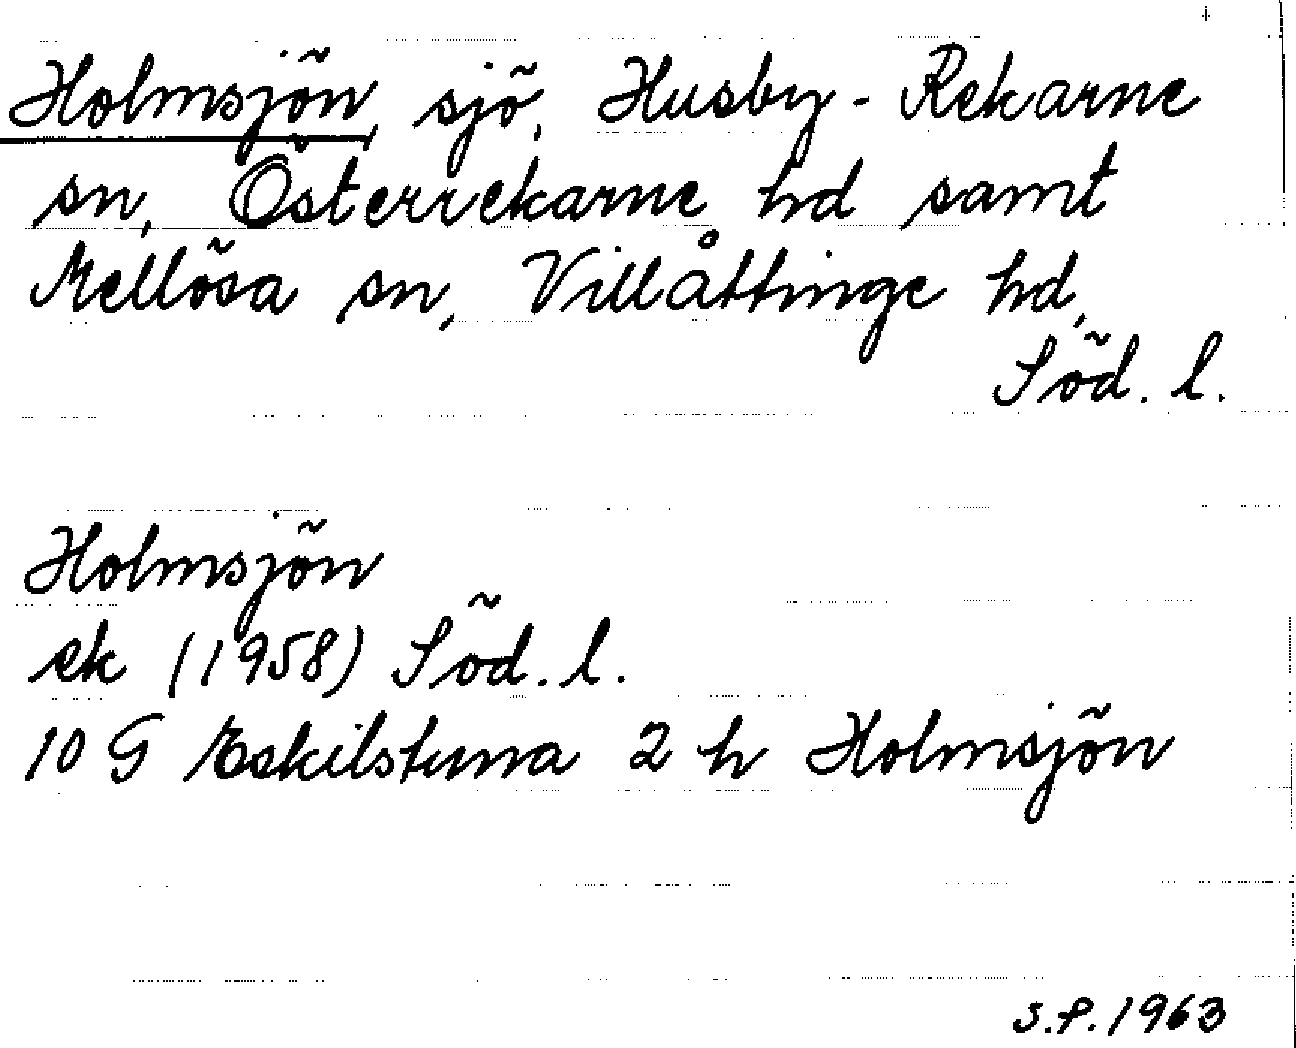 Holmsjön, sjö, Husby-Rekarne
sn, Österrekarne hd samt
Mellösa sn, Villåttinge hd,
Söd. l.
Holmsjön
ek (1958) Söd. l.
10 G Eskilstuna 2 h Holmsjön
S.P. 1963